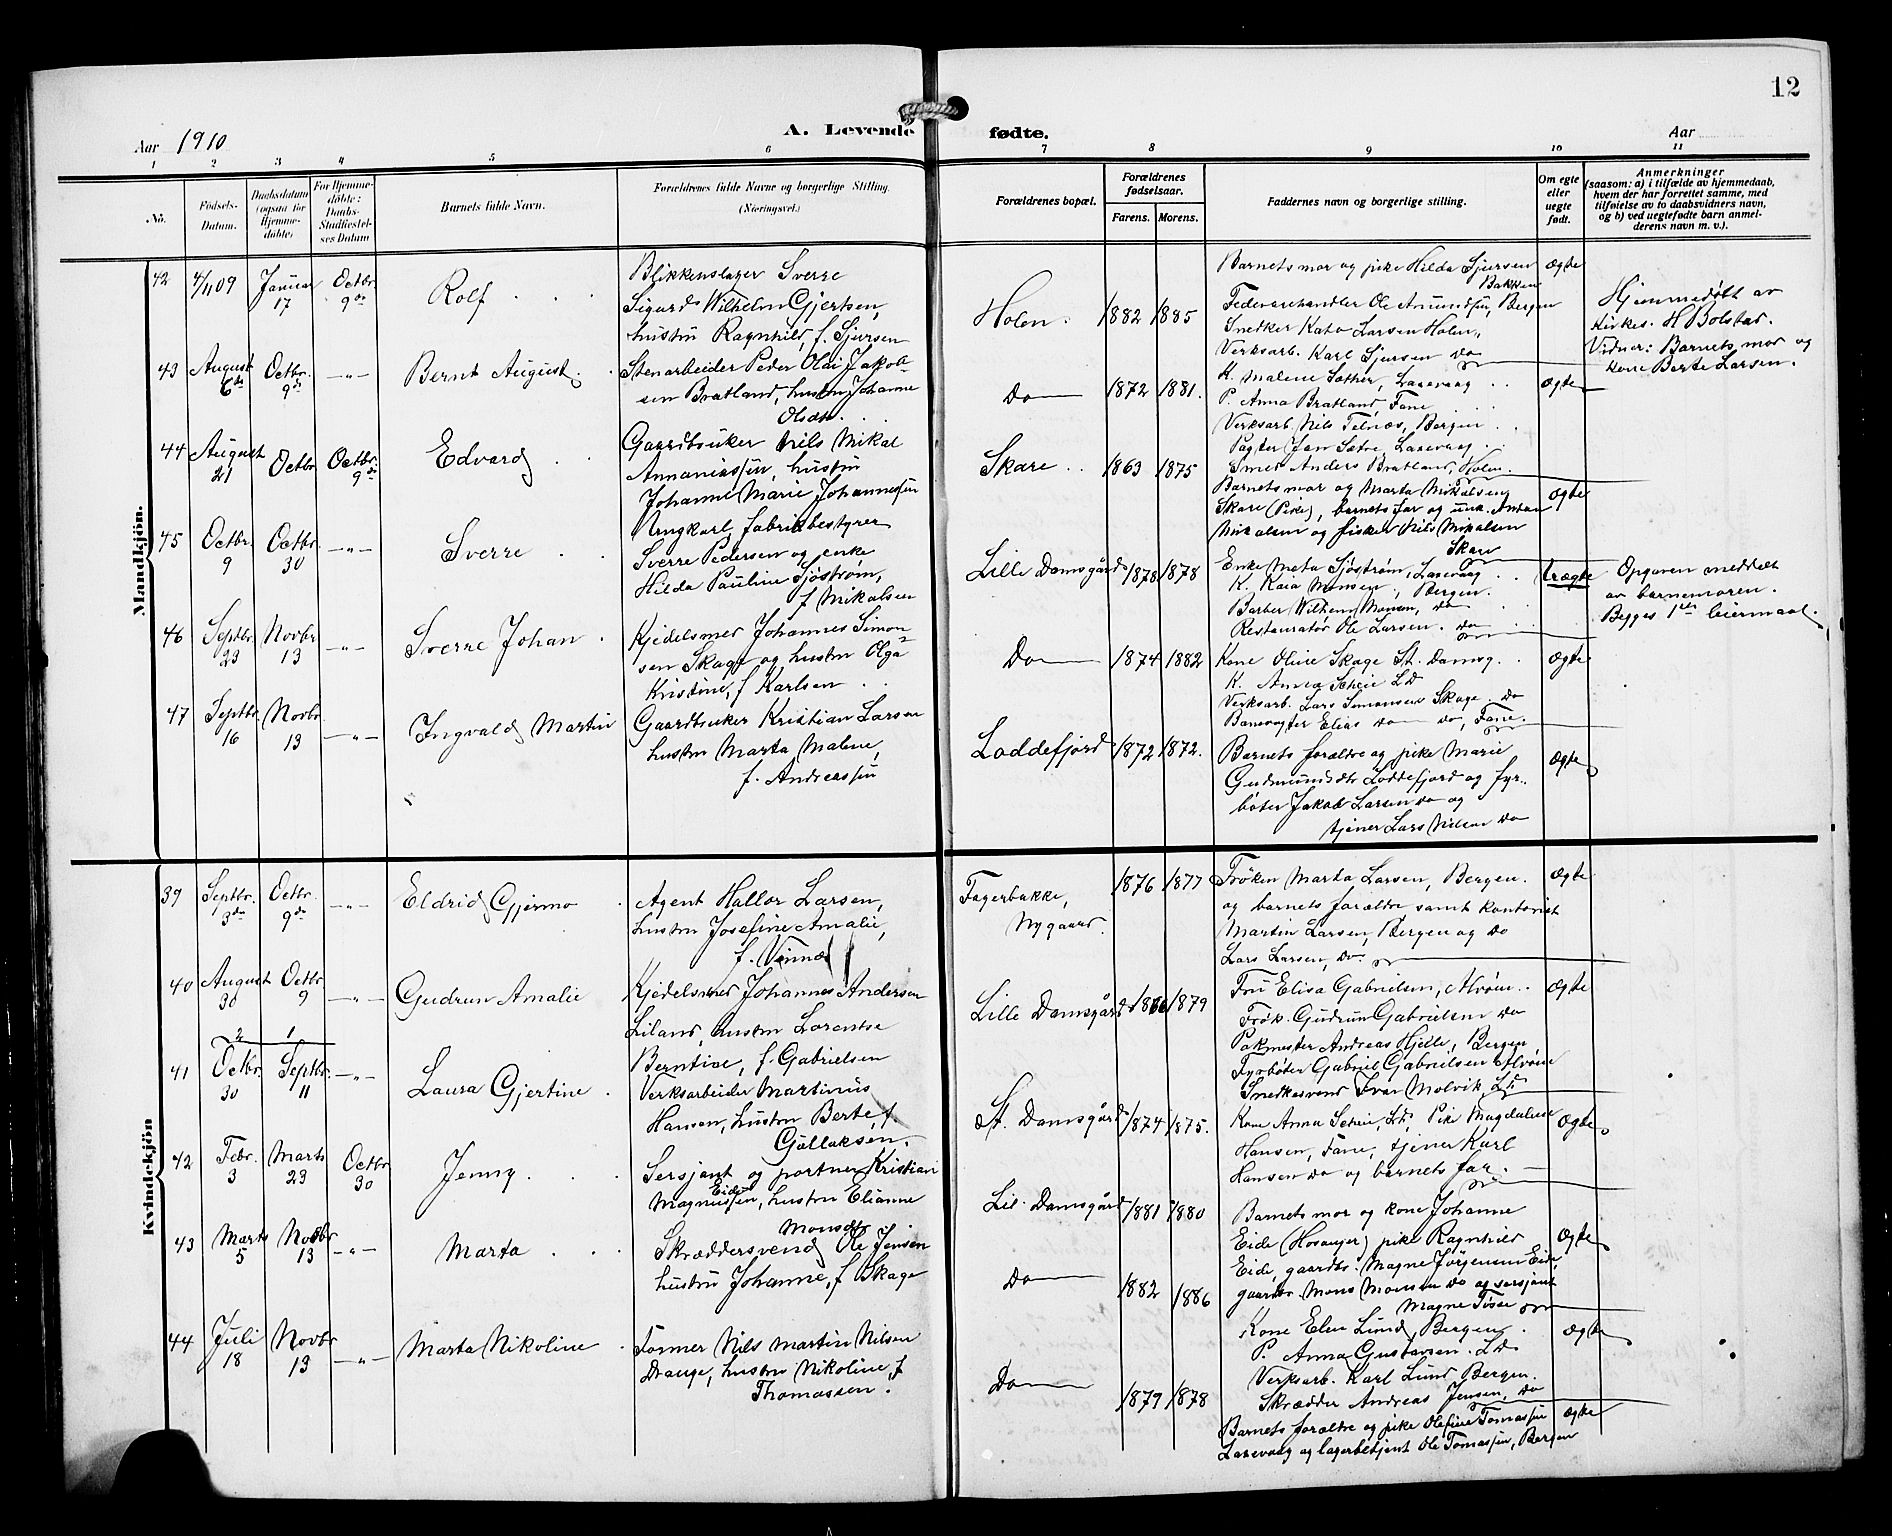 12
Aar 1910
A. Levende fødte.
Aar
1 2 3 4 5 6 7 8 9 10 11
No.
Födsels-Datum.
Daabsdatum (ogsaa for Hjemme-döbte)
For Hjemme-döbte: Daabs-Stadfæstel-ses Datum
Barnets fulde Navn.
Forældrenes fulde Navne og borgerlige Stilling.
(Næringsvei.)
Forældrenes bopæl.
Forældrenes fødselsaar.
Farens. Morens.
Faddernes navn og borgerlige stilling.
Om egte eller uegte født.
Anmerkninger
(saasom: a) i tilfælde av hjemmedaab,
hvem der har forrettet samme, med
tilføielse av to daabsvidners navn,
og b) ved uegtefødte barn anmel-
derens navn m. v.).
Mandkjön.
42 4/11 09 Januar 17 Octbr. 9de Rolf
Blikkenslager Sverre
Sigurd Wilhelm Gjertsen,
hustru Ragnhild, f. Sjursen
Holen. 1882 1885
Barnets mor og pike Hilda Sjursen
Bakken
Fedevarehandler Ole Amundsen, Bergen
Snedker Kato Larsen Holen
Verksarb. Karl Sjursen do
Ægte
Hjemmedøbt av
kirkes. H Bolstad.
Vidner: Barnets mor og
kone Berte Larsen.
43 August 6te Octbr. 9de -"- Bernt August
Stenarbeider Peder Olai Jakob-
sen Bratland, hustru Johanne
Olsdtr.
Do 1872 1881.
K. Malene Sæther, Laxevaag
P. Anna Bratland, Fane
Verksarb. Nils Telnæs, Bergen
Pagter Jan Sætre, Laxevaag
Smed Anders Bratland, Holen.
Ægte
44 August 21 Octbr. Octbr. 9de Edvard
Gaardbruker Nils Mikal
Annaniassen, hustru
Johanne Marie Johannessen
Skare 1863 1875
Barnets mor og Marta Mikalsen
Skare (Pike), barnets far og unk. Anton
Mikalsen og fisker Nils Mikalsen
Skare
Ægte
45 Octbr. 9 Octbr. 30 -"- Sverre
Ungkarl, fabrikbestyrer
Sverre Pedersen og enke
Hilda Pauline Sjöström,
f Mikalsen
Lille Damsgård 1878 1878
Enke Meta Sjöström, Laxevaag
K. Kaia Monsen, Bergen.
Barber Wilhelm Monsen, do
Restauratør Ole Larsen. do
Uægte
Opgaven meddelt
av barnemoren.
Begges 1ste leiermaal.
46 Septbr. 23 Novbr. 13 -"- Sverre Johan
Kjedelsmed Johannes Simon
sen Skage og hustru Olga
Kristine, f Karlsen
Do 1874 1882
Kone Oline Skage St. Damsg.
K. Anna Scheie L D
Verksarb. Lars Simonsen Skage. do
Banevogter Elias do do, Fane.
Ægte
47 Septbr. 16 Novbr. 13 -"- Ingvald Martin
Gaardbruker Kristian Larsen
hustru Marta Malene,
f. Andreassen
Loddefjord 1872 1872.
Barnets forældre og pike Marie
Gudmundsdtr Loddefjord og fyr-
bøter Jakob Larsen do og
tjener Lars Nilsen do
Ægte
Kvindekjön
39 Septbr. 3de Octbr. 9de -"- Eldrid Gjermo
Agent Hallor Larsen,
hustru Josefine Amalie,
f. Vinnæs
Fagerbakke,
Nygaard.
1876 1877
Frøken Marta Larsen, Bergen.
og barnets forældre samt kontorist
Martin Larsen, Bergen og do
Lars Larsen, do
Ægte
40 August 30 Octbr. 9 -"- Gudrun Amalie
Kjedelsmed Johannes Andersen
Liland, hustru Lorentse
Berntine, f. Gabrielsen
Lille Damsgård 1879
Fru Elisa Gabrielsen, Alvøen.
Frøk. Gudrun Gabrielsen do
Pakmester Andreas Hjelle, Bergen
Fyrbøter Gabriel Gabrielsen Alvøen
Snedkersvend Ivar Molvik, LD
Ægte
2 1
41 Octbr. 30 Septbr. 11 -"- Laura Gjertine
Verksarbeider Martinus
Hansen, hustru Berte, f
Gullaksen.
St. Damsgård 1874 1875.
Kone Anna Scheie, Ld, Pike Magdalene
Hansen, Fane, tjener Karl
Hansen do og barnets far.
Ægte
42 Febr. 3 Marts 23 Octbr. 30 Jenny
Sersjant og portner Kristian
Magnussen Eide, hustru Elianne
Monsdtr
Lil. Damsgård 1881 1880
Barnets mor og kone Johanne
Eide (Hosanger) pike Ragnhild
Eide, gaardbr. Magne Jørgensen Eide,
gaardbr. Mons Monsen do og sersjant
Magne Tosse
Ægte
43 Marts 5 Novbr 13 -"- Marta
Skræddersvend Ole Jensen
hustru Johanne, f Skage
Do 1882 1886
Kone Elen Lund, Bergen
P. Anna Gustavsen. LD.
Verksarb. Karl Lund Bergen.
Skrædder Andreas Jensen, do
Ægte
44 Juli 18 Novbr 13 -"- Marta Nikoline
Former Nils Martin Nilsen
Drange, hustru Nikoline, f
Thomassen.
Do 1879 1878
Barnets forældre og pike Olefine Tomassen
Laxevaag og lagerbetjent Ole Tomassen, Bergen
Ægte